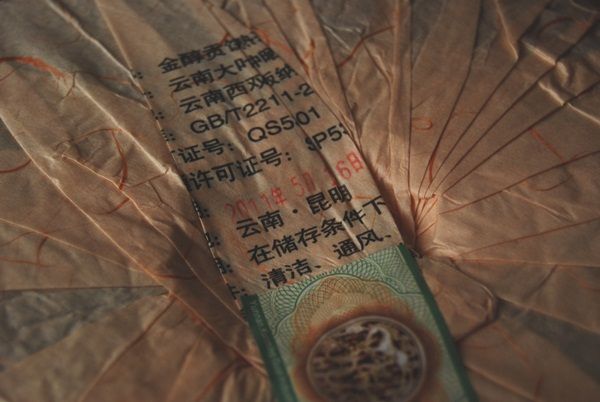 金醇贡饼
云南大叶
云南西双版纳
GB/T2211-2
证号: QS501
许可证号: SP53
2011年50 16日
云南·昆明
在储存条件下
清洁、通风、